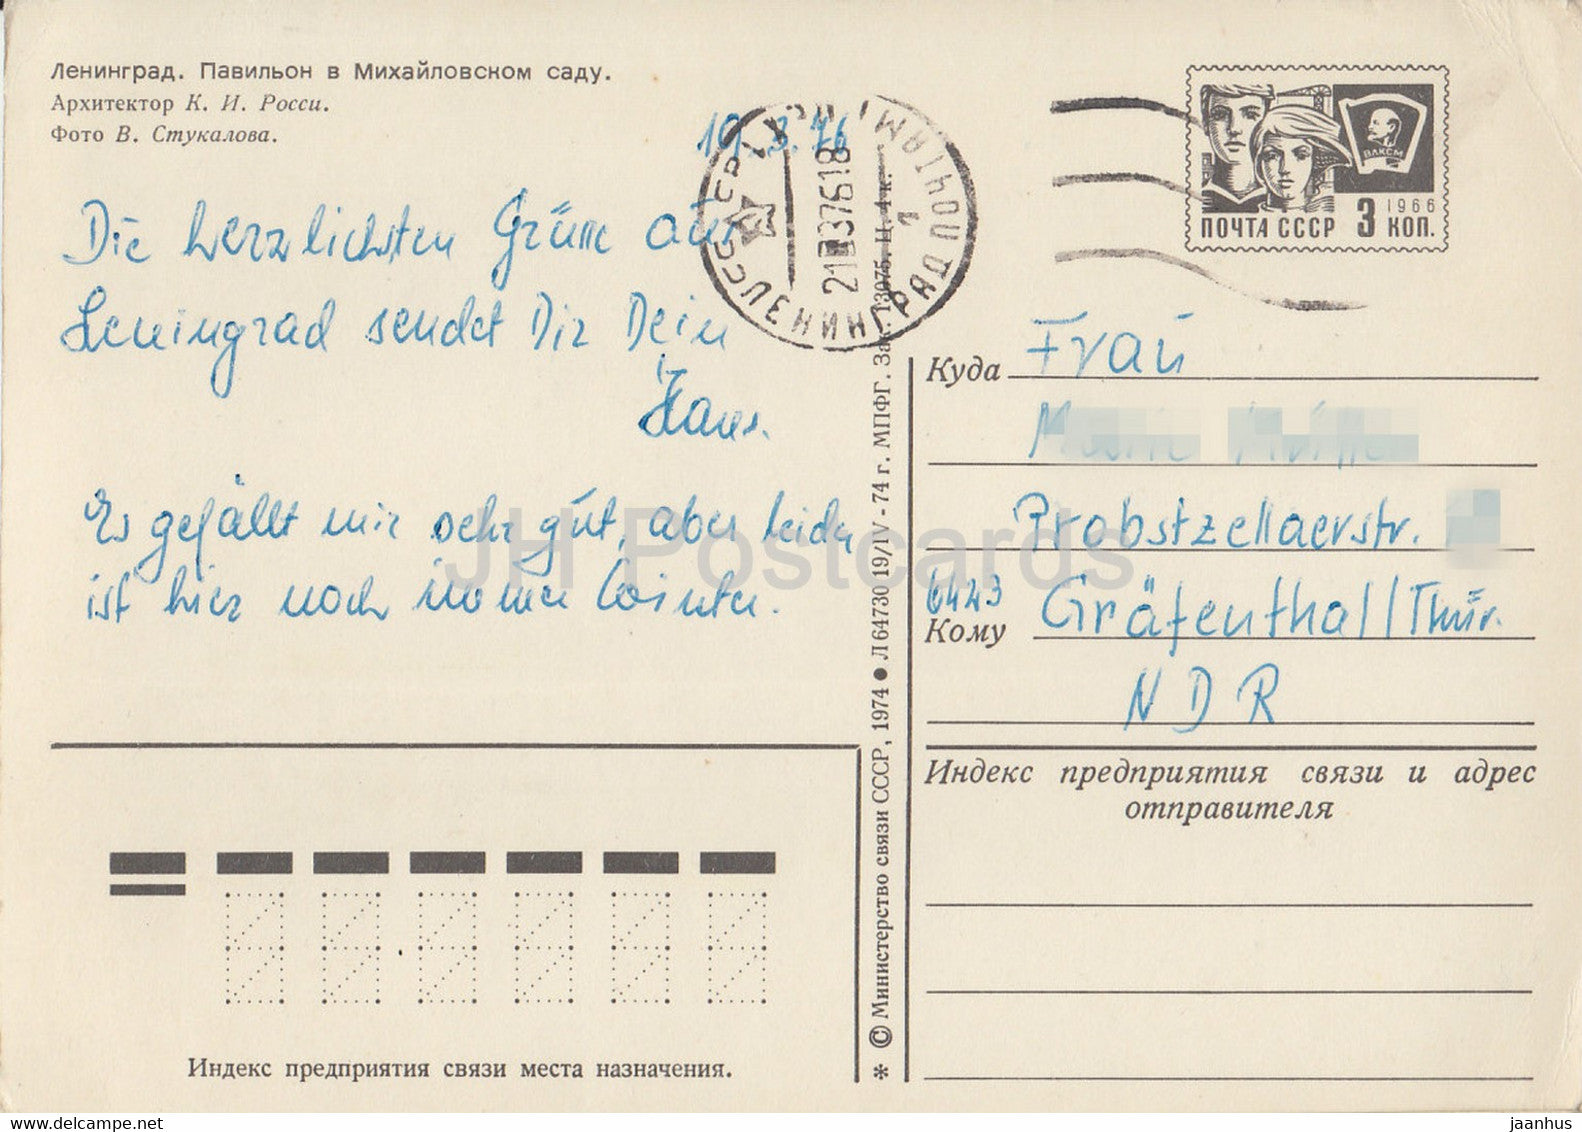 Ленинград. Павильон в Михайловском саду.
Архитектор К. И. Росси.
Фото В. Стукалова.
19.3.76
Die herzlichsten Grüße aus
Leningrad sendet Dir Dein
Hans.
Es gefällt mir sehr gut, aber leider
ist hier noch immer Winter.
ЛЕНИНГРАД ПОЧТАМТ
СССР
1966
ВЛКСМ
ПОЧТА СССР 3 КОП.
Куда Frau
Probstzellaerstr.
6423 Gräfenthal/Thür.
Кому
NDR
Индекс предприятия связи и адрес
отправителя
Индекс предприятия связи места назначения.
* © Министерство связи СССР, 1974 ● Л 64730 19/IV - 74 г. МПФГ. Зак. 13075. Ц. 4 к.
JH Postcards
www.delcampe.net
jaanhus